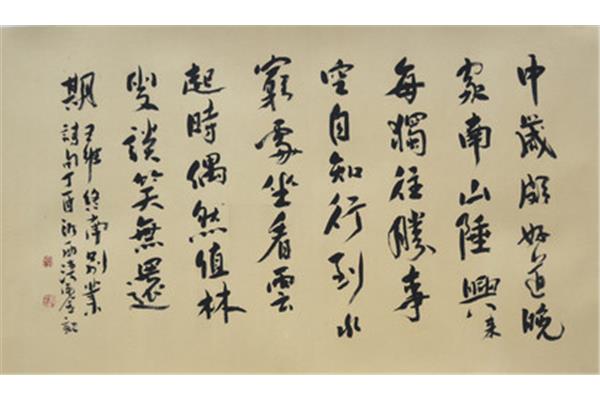 中歲頗好道晚
家南山陲興來
每獨往勝事
空自知行到水
窮處坐看雲
起時偶然值林
叟談笑無還
期
王維終南別業
詩句丁酉